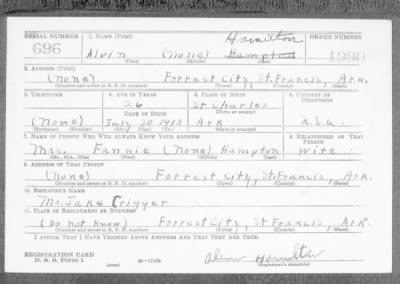 SERIAL NUMBER 1. NAME (Print) ORDER NUMBER
Hamilton
696 Alvin (None) Hampton 1990
(First) (Middle) (Last)
2. ADDRESS (Print)
(None) Forrest City, St. Francis, Ark.
(Number and street or R. F. D. number) (Town) (County) (State)
3. TELEPHONE 4. AGE IN YEARS 5. PLACE OF BIRTH 6. COUNTRY OF CITIZENSHIP
26 St. Charles
(Town or county)
DATE OF BIRTH
(None) July 20 1913 Ark U.S.A.
(Exchange) (Number) (Mo.) (Day) (Yr.) (State or country)
7. NAME OF PERSON WHO WILL ALWAYS KNOW YOUR ADDRESS 8. RELATIONSHIP OF THAT PERSON
Mrs. Fannie (None) Hampton Wife
(Mr., Mrs., Miss) (First) (Middle) (Last)
9. ADDRESS OF THAT PERSON
(None) Forrest City, St. Francis, Ark.
(Number and street or R. F. D. number) (Town) (County) (State)
10. EMPLOYER'S NAME
Mr. Jake Crigger
11. PLACE OF EMPLOYMENT OR BUSINESS
(Do not know) Forrest City, St. Francis, Ark.
(Number and street or R. F. D. number) (Town) (County) (State)
I AFFIRM THAT I HAVE VERIFIED ABOVE ANSWERS AND THAT THEY ARE TRUE.
REGISTRATION CARD
D. S. S. Form 1 (over) Alvin Hamilton
(Registrant's signature)